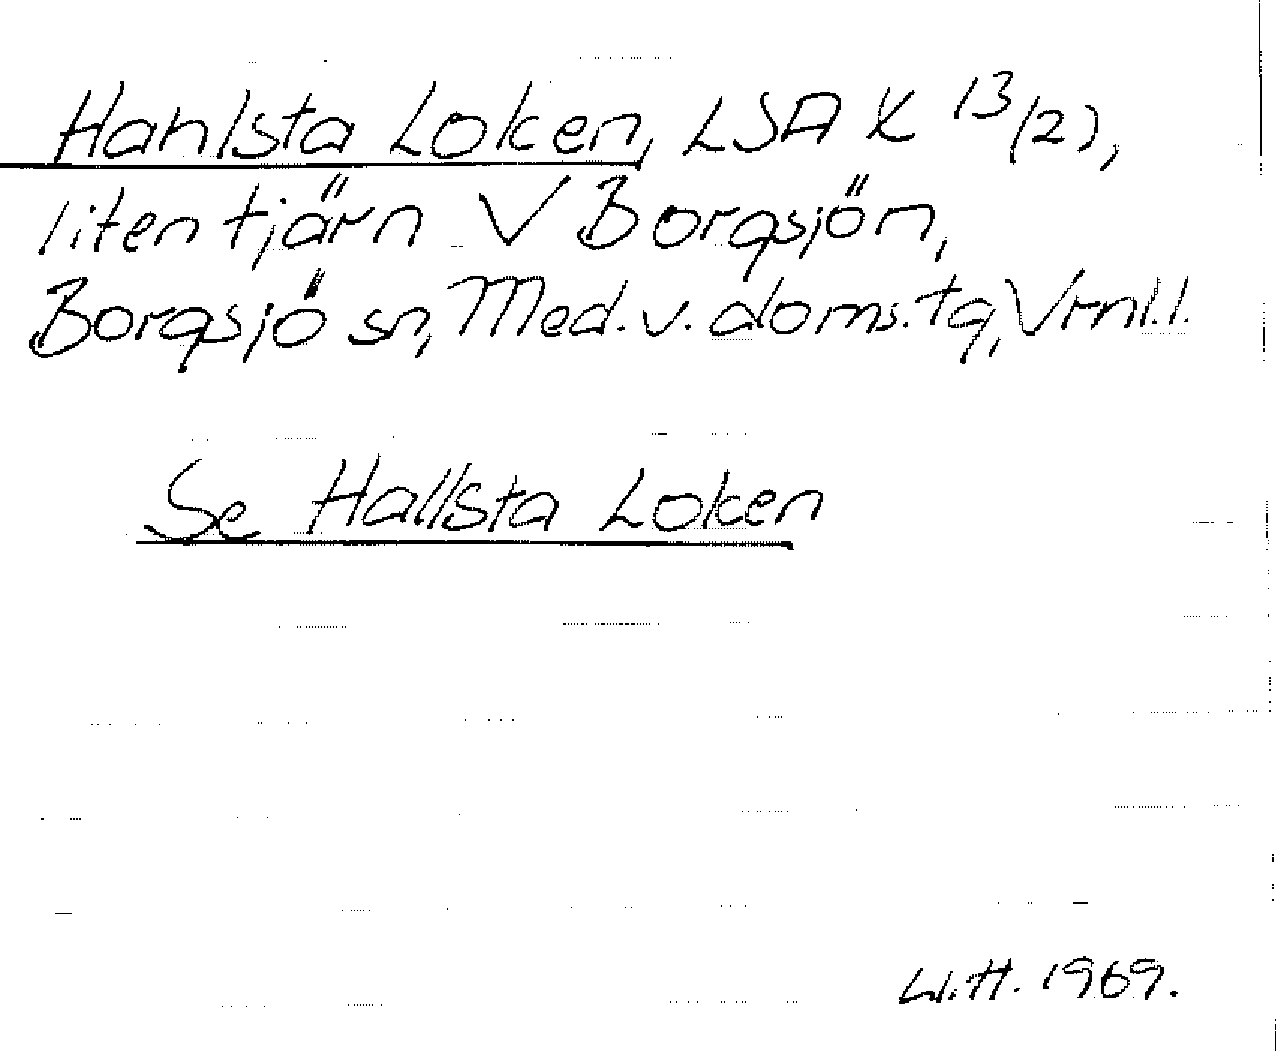 Hahlsta Loken, LSA K 13/2),
liten tjärn V Borgsjön,
Borgsjö sn, Med. v. doms. tg, Vrnl.l.
Se Hallsta Loken
W.H. 1969.